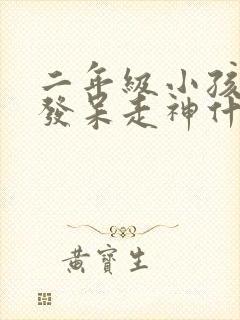 二年級小孩
發呆走神什
黃寶生